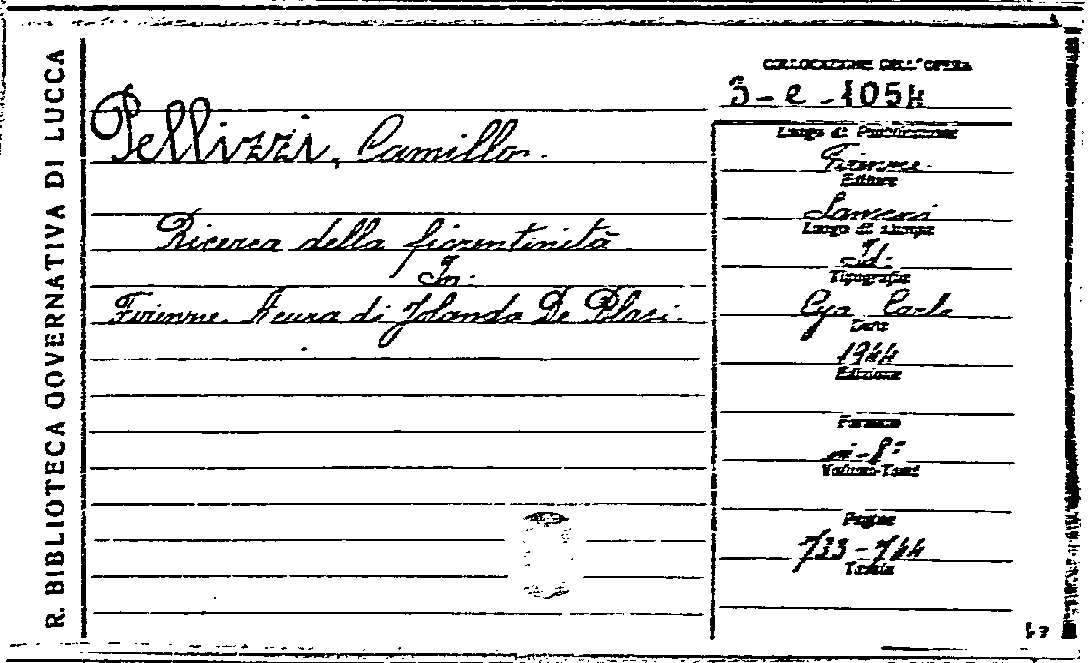 R. BIBLIOTECA GOVERNATIVA DI LUCCA
COLLOCAZIONE DELL'OPERA
3-e-1054
Pellizzi, Camillo.
Ricerca della fiorentinità
In:
Firenze. A cura di Jolanda De Blasi.
Luogo di Pubblicazione
Firenze.
Editore
Sansoni
Luogo di stampa
Id.
Tipografia
Cya Carlo
Data
1944
Edizione
Formato
in-8°
Volume-Tomi
Pagine
733-744
Tavole